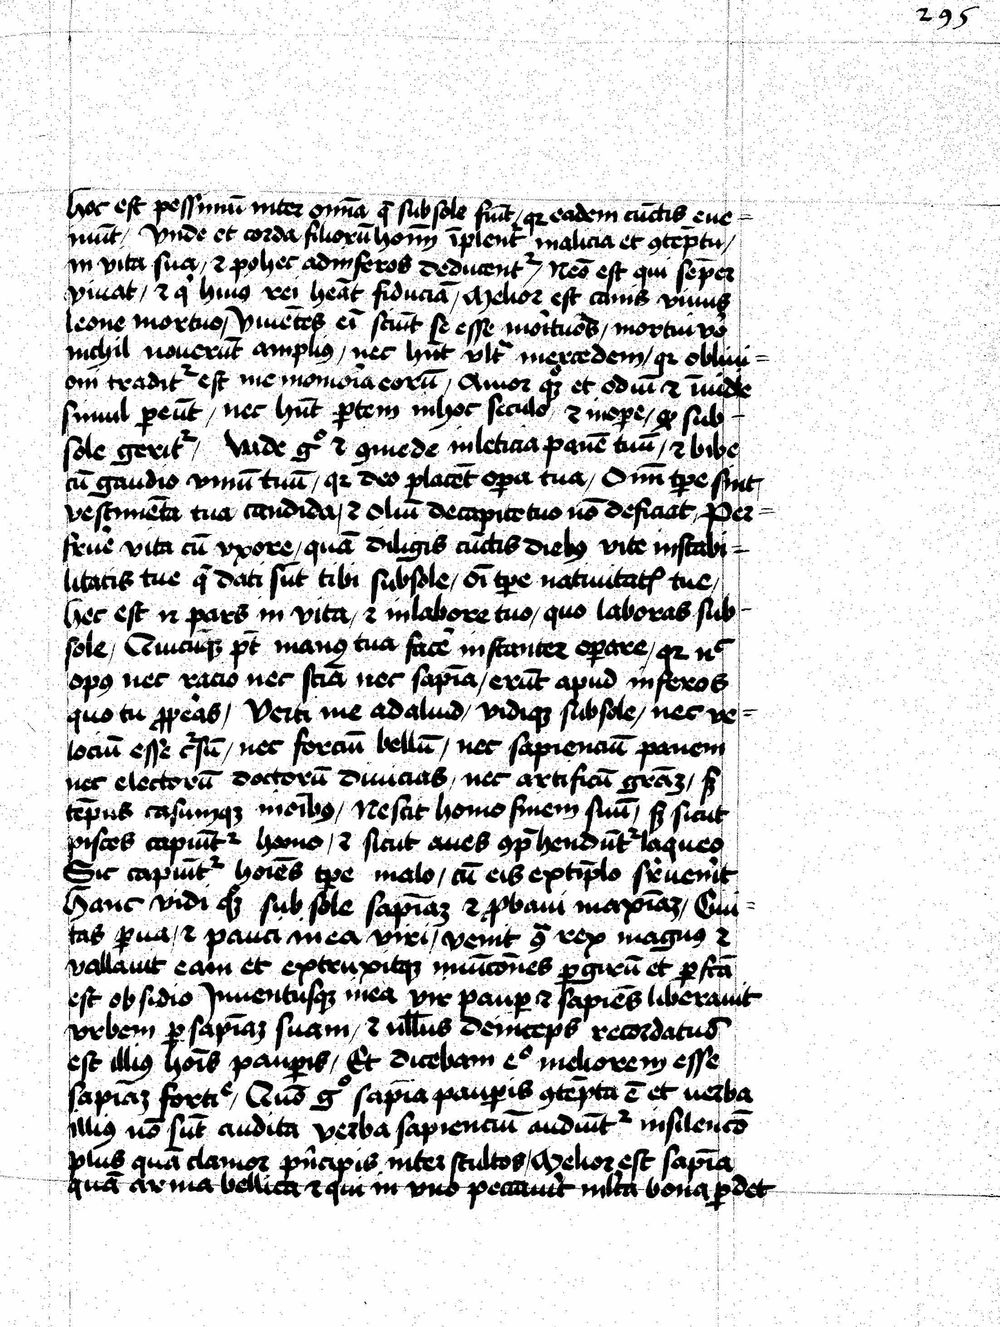 295
hoc est pessimū inter om̄ia q̄ sub sole fiūt / qr eadem cūctis eue=
niūt / Vnde et corda filiorū hoīm īplent᷑ malicia et ꝯtēptu /
in vita sua / ⁊ pꝰ hec ad inferos deducent᷑ / Nēo est qui semꝑ
viuat / ⁊ qͥ huiꝰ rei heāt fiduciā / Melior est canis viuus
leone mortuo / Viuētes eī sciūt se esse moritūos / mortui vͦo
nichil nouerūt ampliꝰ / nec hn̄t vltᵃ mercedem / qr obliui=
oni tradit᷑ est me memoria eorū / Amor qͦꝫ et odiū ⁊ īuidie
simul ꝑeūt / nec hn̄t ꝑtem in hoc seculo ⁊ in oꝑe / qͩ sub=
sole gerit᷑ / Vade gͦ ⁊ ꝯmede in leticia panē tuū / ⁊ bibe
cū gaudio vinū tuū / qr deo placēt oꝑa tua / Om̄i tꝑe sint
vestimēta tua candida / ⁊ oliū de capite tuo nō deficiat / Per=
fruē vita cū vxore / quā diligis cūctis diebꝰ vite instabi=
litatis tue q̄ dati sūt tibi sub sole / oī tꝑe natiuitatꝭ tue /
hec est n̄ pars in vita / ⁊ in labore tuo / quo laboras sub=
sole / Quicūqꝫ pt̄ manꝰ tua facē instanter oꝑare / qr nᶜ
opꝰ nec racio nec sciā nec sapīa / erūt apud inferos
quo tu ꝓꝑas / Verti me ad aliud / vidiqꝫ sub sole / nec ve=
lociū esse cᵉsū / nec forciū bellū / nec sapienciū panem
nec electorū doctorū diuicias / nec artificū grāꝫ / sꝫ
tēpus casumqꝫ in oībꝰ / Nescit homo finem suū / sꝫ sicut
pisces capiūt᷑ homo / ⁊ sicut aues ꝯp̄hendūt᷑ laqueo
Sic capiūt᷑ hoīes tꝑe malo / cū eis extīplo sᵘuenīt
Hanc vidi qͦꝫ sub sole sapīaꝫ ⁊ ꝓbaui maxīaꝫ / Ciui=
tas ꝑua / ⁊ pauci in ea viri / venit ꝯͣ rex magnꝰ ⁊
vallauit eam et extruxitqꝫ municōnes ꝑ girū et ꝑfcā
est obsidio Inuentusqꝫ in ea vir pauꝑ ⁊ sapiēs liberauit
vrbem ꝑ sapīaꝫ suam / ⁊ nll̄us deinceps recordatus
est illiꝰ hoīs pauꝑis / Et dicebam eᵒ meliorem esse
sapīaꝫ fortiᵉ / Quō gͦ sapīa pauꝑis ꝯtēpta ē et uerba
illiꝰ nō sūt audita verba sapienciū audiūt᷑ in silencō
plus quā clamor pͥncipis inter stultos / Melior est sapīa
quā arma bellica ⁊ qui in vno peccauīt ml̄ta bona ꝑdet